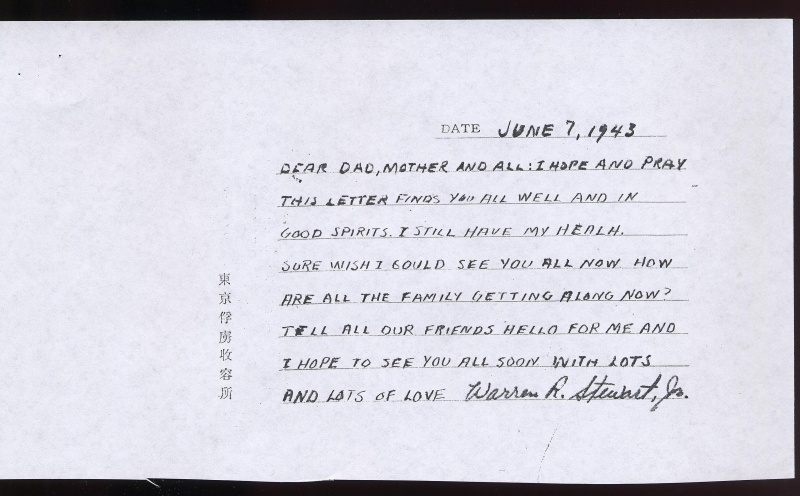 DATE JUNE 7, 1943
DEAR DAD, MOTHER AND ALL: I HOPE AND PRAY
THIS LETTER FINDS YOU ALL WELL AND IN
GOOD SPIRITS. I STILL HAVE MY HEALH.
SURE WISH I COULD SEE YOU ALL NOW HOW
ARE ALL THE FAMILY GETTING ALONG NOW?
TELL ALL OUR FRIENDS HELLO FOR ME AND
I HOPE TO SEE YOU ALL SOON WITH LOTS
AND LOTS OF LOVE Warren R. Stewart, Jr.
東京俘虜收容所